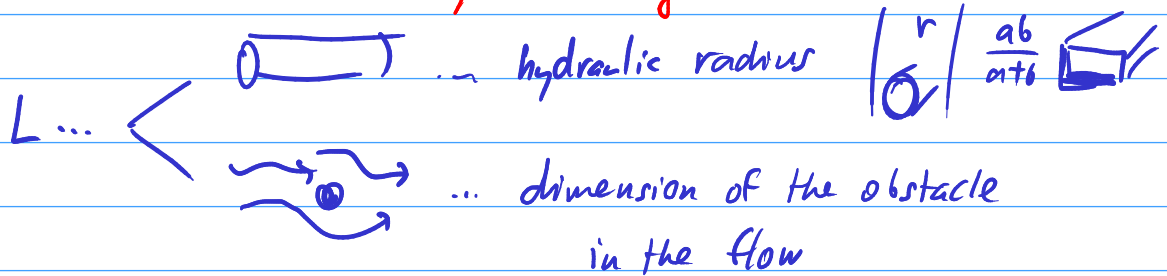 ... hydraulic radius | r | ab/a+b
L ...
... dimension of the obstacle
in the flow